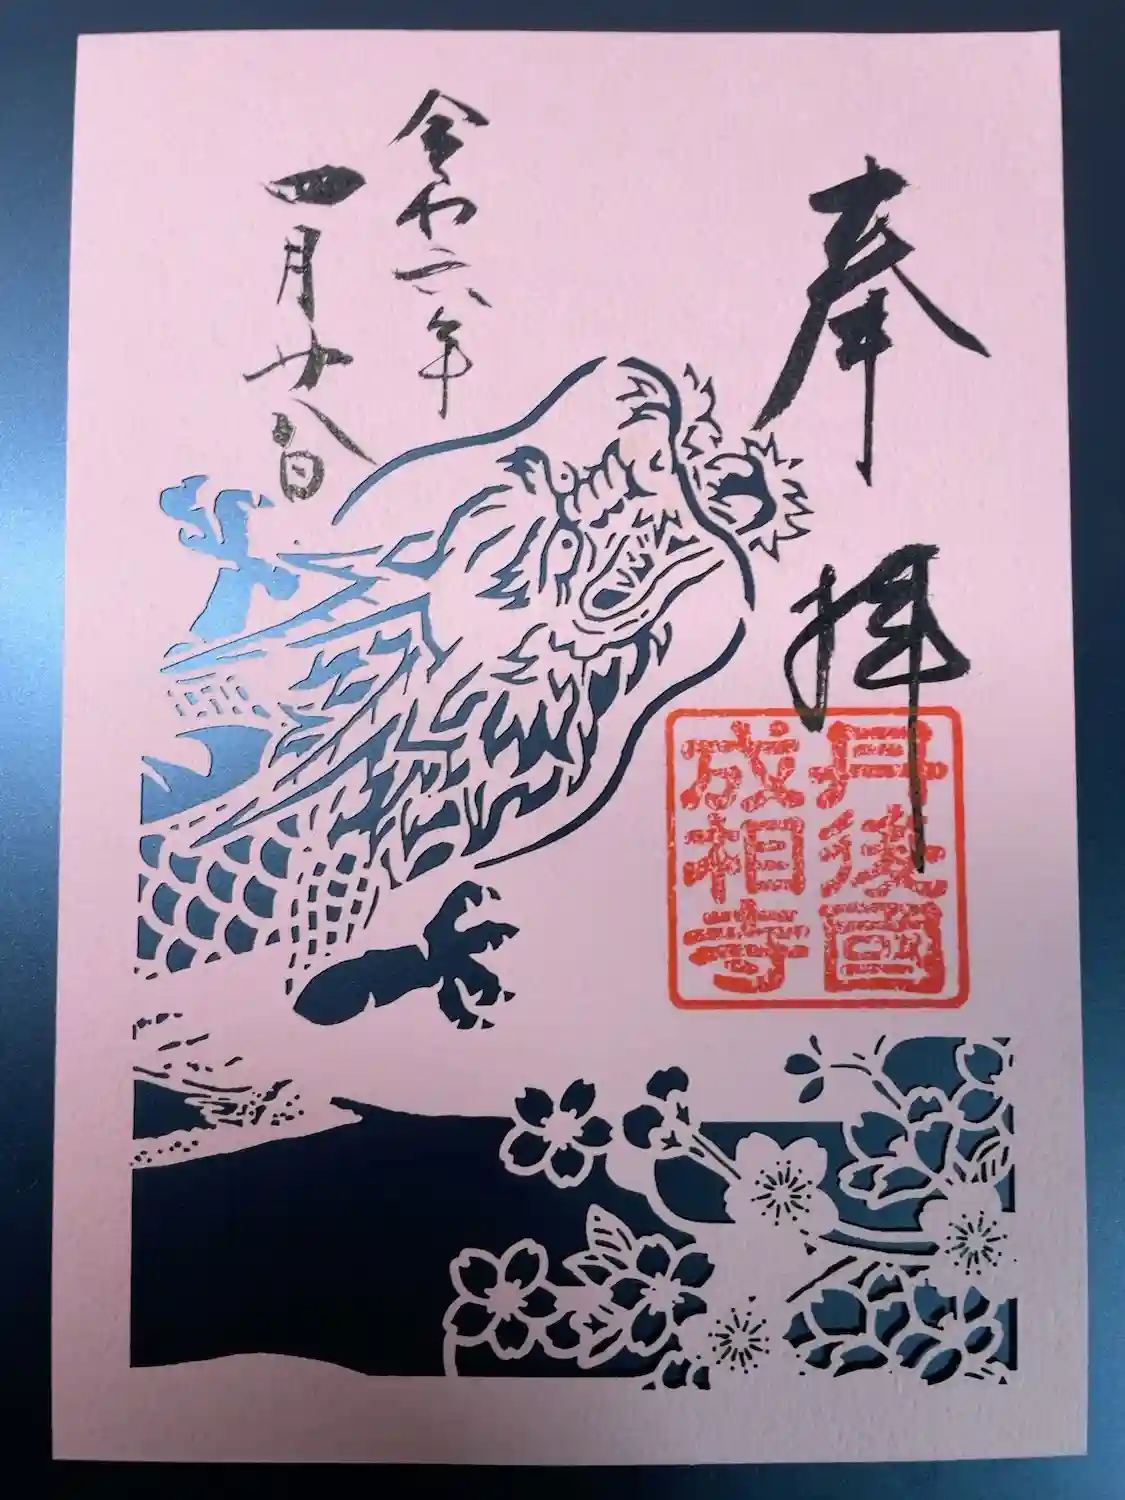 奉拝
丹後國
成相寺
令和六年
四月廿八日